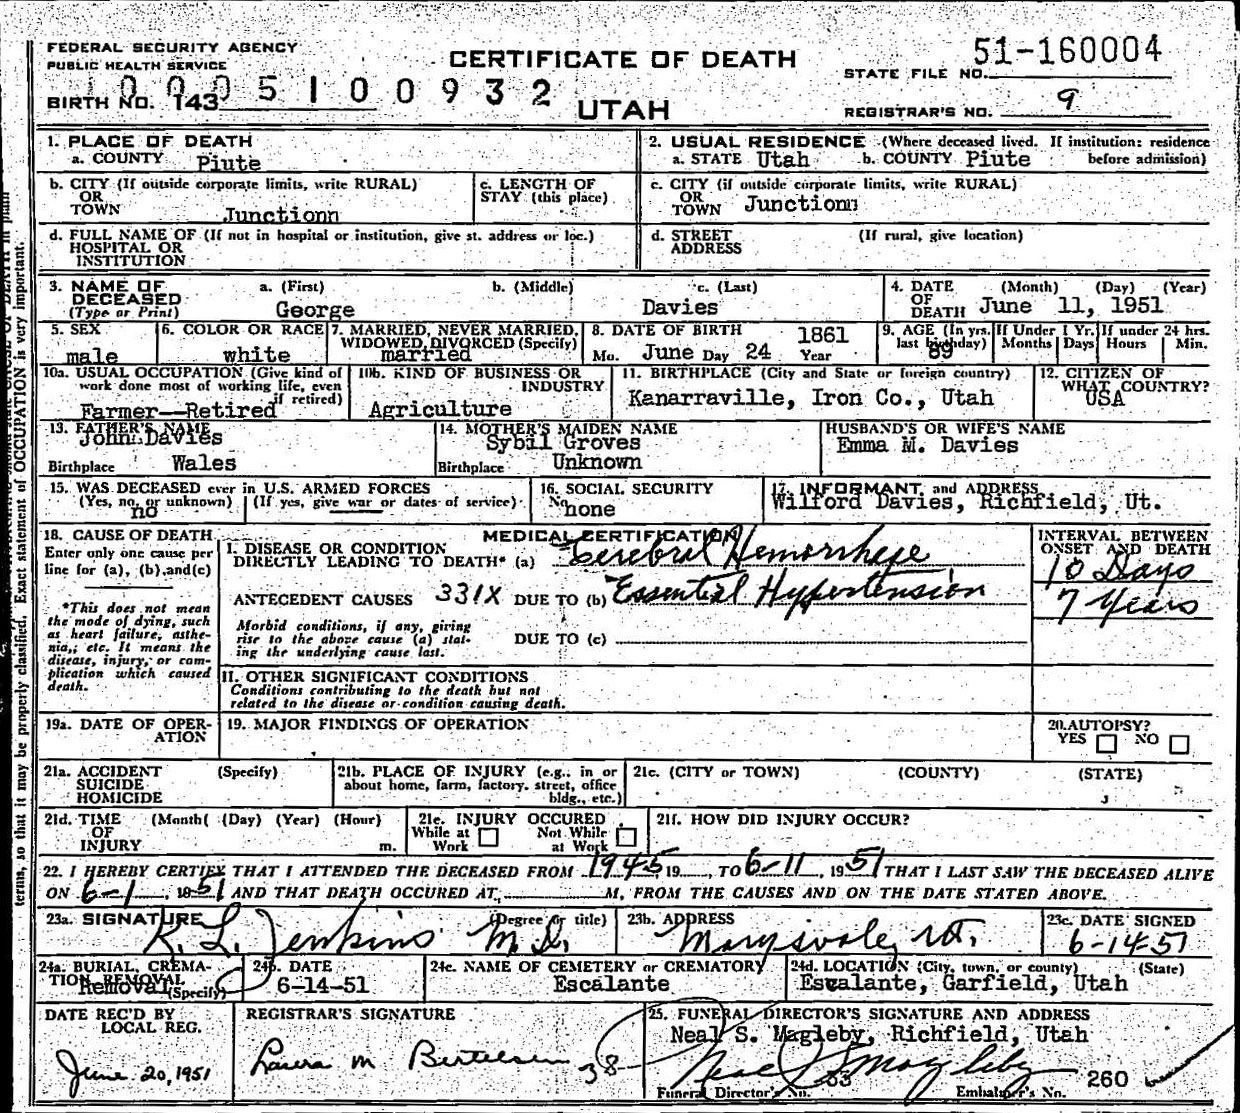 FEDERAL SECURITY AGENCY
PUBLIC HEALTH SERVICE
BIRTH NO. 143
1000510 0932
CERTIFICATE OF DEATH
UTAH
51-160004
STATE FILE NO.
REGISTRAR'S NO. 9
1. PLACE OF DEATH
a. COUNTY Piute
2. USUAL RESIDENCE (Where deceased lived. If institution: residence before admission)
a. STATE Utah b. COUNTY Piute
b. CITY (If outside corporate limits, write RURAL)
OR
TOWN Junctionn
c. LENGTH OF
STAY (this place)
c. CITY (if outside corporate limits, write RURAL)
OR
TOWN Junctionn
d. FULL NAME OF (If not in hospital or institution, give st. address or loc.)
HOSPITAL OR
INSTITUTION
d. STREET (If rural, give location)
ADDRESS
3. NAME OF a. (First) b. (Middle) c. (Last)
DECEASED
(Type or Print) George Davies
4. DATE (Month) (Day) (Year)
OF
DEATH June 11, 1951
5. SEX
male
6. COLOR OR RACE
white
7. MARRIED, NEVER MARRIED,
WIDOWED, DIVORCED (Specify)
married
8. DATE OF BIRTH 1861
Mo. June Day 24 Year
9. AGE (In yrs.
last birthday)
89
If Under 1 Yr.
Months Days
If under 24 hrs.
Hours Min.
10a. USUAL OCCUPATION (Give kind of
work done most of working life, even
if retired)
Farmer--Retired
10b. KIND OF BUSINESS OR
INDUSTRY
Agriculture
11. BIRTHPLACE (City and State or foreign country)
Kanarraville, Iron Co., Utah
12. CITIZEN OF
WHAT COUNTRY?
USA
13. FATHER'S NAME
John Davies
Birthplace Wales
14. MOTHER'S MAIDEN NAME
Sybil Groves
Birthplace Unknown
HUSBAND'S OR WIFE'S NAME
Emma M. Davies
15. WAS DECEASED ever in U.S. ARMED FORCES
(Yes, no, or unknown) (If yes, give war or dates of service)
no
16. SOCIAL SECURITY
No. none
17. INFORMANT and ADDRESS
Wilford Davies, Richfield, Ut.
18. CAUSE OF DEATH
Enter only one cause per
line for (a), (b), and (c)
*This does not mean
the mode of dying, such
as heart failure, asthe-
nia,; etc. It means the
disease, injury, or com-
plication which caused
death.
MEDICAL CERTIFICATION
I. DISEASE OR CONDITION
DIRECTLY LEADING TO DEATH* (a) Cerebral Hemorrhage
ANTECEDENT CAUSES 331X DUE TO (b) Essential Hypertension
Morbid conditions, if any, giving
rise to the above cause (a) stat-
ing the underlying cause last.
DUE TO (c)
INTERVAL BETWEEN
ONSET AND DEATH
10 Days
7 Years
II. OTHER SIGNIFICANT CONDITIONS
Conditions contributing to the death but not
related to the disease or condition causing death.
19a. DATE OF OPER-
ATION
19. MAJOR FINDINGS OF OPERATION
20. AUTOPSY?
YES NO
21a. ACCIDENT (Specify)
SUICIDE
HOMICIDE
21b. PLACE OF INJURY (e.g., in or
about home, farm, factory, street, office
bldg., etc.)
21c. (CITY or TOWN) (COUNTY) (STATE)
21d. TIME (Month( (Day) (Year) (Hour)
OF
INJURY m.
21e. INJURY OCCURED
While at Work Not While at Work
21f. HOW DID INJURY OCCUR?
22. I HEREBY CERTIFY THAT I ATTENDED THE DECEASED FROM 1945 19 , TO 6-11, 1951 THAT I LAST SAW THE DECEASED ALIVE
ON 6-1, 1951 AND THAT DEATH OCCURED AT M, FROM THE CAUSES AND ON THE DATE STATED ABOVE.
23a. SIGNATURE (Degree or title)
R. L. Jenkins M.D.
23b. ADDRESS
Marysvale, Ut.
23c. DATE SIGNED
6-14-51
24a. BURIAL, CREMA-
TION REMOVAL
Removal (Specify)
24b. DATE
6-14-51
24c. NAME OF CEMETERY or CREMATORY
Escalante
24d. LOCATION (City, town, or county) (State)
Escalante, Garfield, Utah
DATE REC'D BY
LOCAL REG.
June 20, 1951
REGISTRAR'S SIGNATURE
Laura M Bertelsen 38
25. FUNERAL DIRECTOR'S SIGNATURE AND ADDRESS
Neal S. Magleby, Richfield, Utah
Neal S Magleby
Funeral Director's No. Embalmer's No. 260
terms, so that it may be properly classified. Exact statement of OCCUPATION is very important.